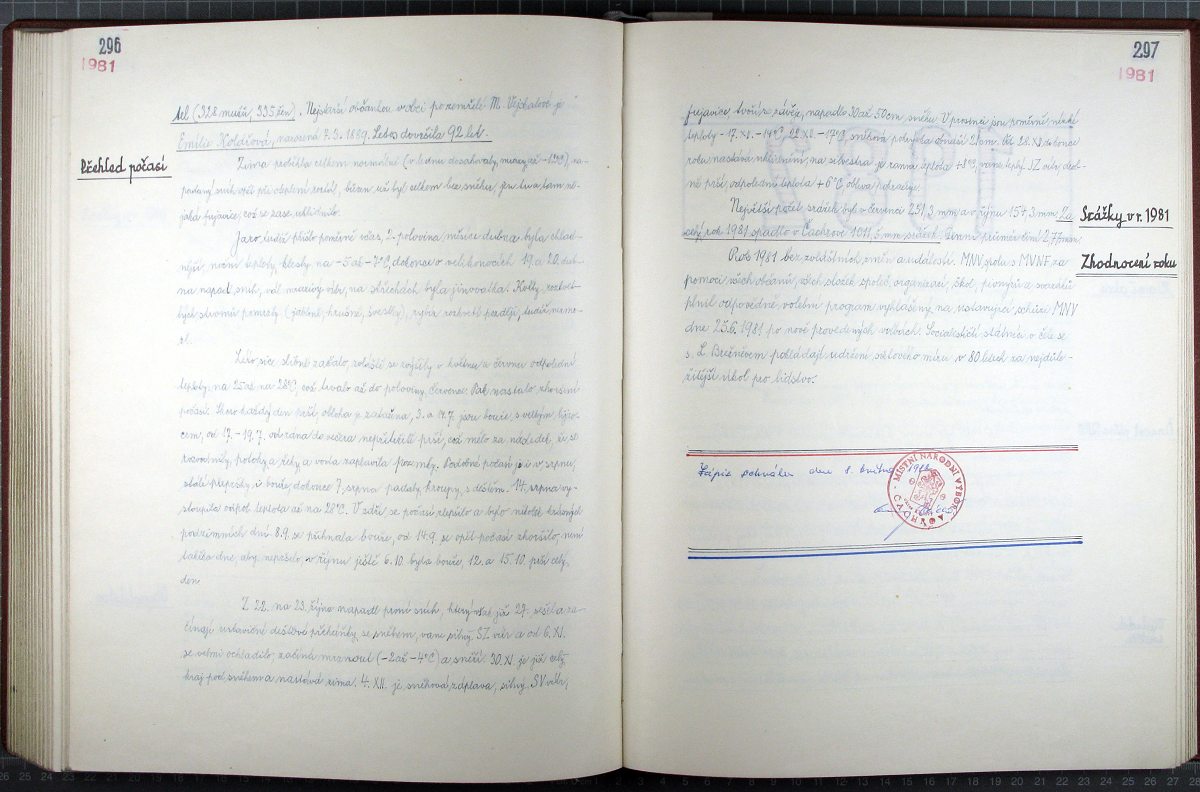 296
1981
tel (328 mužů, 335 žen). Nejstarší občankou v obci po zemřelé M. Vejchalové je
Emilie Koldřová, narozená 7.3. 1889. Letos dovršila 92 let.
Přehled počasí
Zima proběhla celkem normálně (v lednu dosahovaly mrazy až -19°C), na-
padaný sníh opět při oteplení roztál, březen už byl celkem bez sněhu, jen tu a tam ně-
jaká fujavice, což se zase uklidnilo.
Jaro, tudíž přišlo poměrně včas, 2. polovina měsíce dubna byla chlad-
nější, noční teploty klesly na -5 až -7°C, dokonce o velikonocích 19. a 20. dub-
na napadl sníh, vál mrazivý vítr, na střechách byla jinovatka. Květy
ných stromů pomrzly (jabloně, hrušně, švestky), rybíz rozkvetl později, tudíž nezmr-
zl.
Léto sice slibně začalo, zvláště se zvýšily v květnu a červnu odpolední
teploty na 25 až na 28°C, což trvalo až do poloviny července. Pak nastalo zhoršení
počasí. Skoro každý den prší, obloha je zatažena, 3. a 14.7. jsou bouře s velkým lijav-
cem, od 17. - 19.7. od rána do večera nepřetržitě prší, což mělo za následek, že se
rozvodnily potoky a řeky a voda zaplavila pozemky. Podobné počasí je i v srpnu,
stálé přepršky i bouře, dokonce 7. srpna padaly kroupy s deštěm. 14. srpna vy-
stoupila odpol. teplota až na 28°C. V září se počasí zlepšilo a bylo několik krásných
podzimních dní. 8.9. se přihnala bouře, od 14.9. se opět počasí zhoršilo, není
takřka dne, aby nepršelo, v říjnu ještě 6.10. byla bouře, 12. a 15.10. prší celý
den.
Z 22. na 23. října napadl první sníh, který však již 24. sešel a za-
čínají ustavičné dešťové přeháňky se sněhem, vane silný SZ vítr a od 6. XI.
se velmi ochladilo, začíná mrznout (-2 až -4°C) a sněží. 30. XI. je již celý
kraj pod sněhem a nastává zima. 4. XII. je sněhová záplava, silný SV vítr,
297
1981
fujavice, tvoří se závěje, napadlo 30 až 50 cm sněhu. V prosinci jsou poměrně nízké
teploty - 17. XI. -14°C, sněhová pokrývka obnáší 21 cm. Od 28. XII. dokonce
roku nastává uklidnění, na silvestra je ranní teplota +8°C, vane teplý JZ vítr, deš-
ně prší, odpolední teplota +6°C, obleva pokračuje.
Srážky v r. 1981
Největší počet srážek byl v červenci 251,3 mm a v říjnu 154,3 mm. Za
celý rok 1981 spadlo v Čachrově 1011,5 mm srážek. Denní průměr činí 2,77 mm.
Zhodnocení roku
Rok 1981 bez zvláštních změn a událostí. MNV spolu s MVNF za
pomoci všech občanů, všech složek společ. organizací, škol, pionýrů a svazáků
plnil odpovědně volební program vyhlášený na ustavující schůzi MNV
dne 25.6. 1981 po nově provedených volbách. Socialističtí státníci v čele se
s. L. Brežněvem pokládají udržení světového míru v 80 letech za nejdůle-
žitější úkol pro lidstvo.
Zápis schválen dne 8. května 1982
MÍSTNÍ NÁRODNÍ VÝBOR